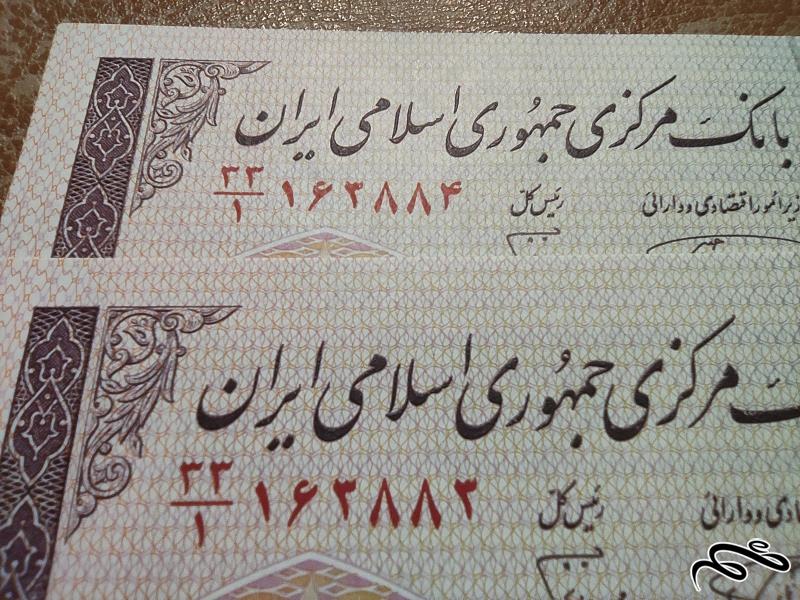 بانک مرکزی جمهوری اسلامی ایران
۳۳/۱ ۱۶۳۸۸۴
زیر امور اقتصادی و دارائی رئیس کل
مرکزی جمهوری اسلامی ایران
۳۳/۱ ۱۶۳۸۸۳
ادی و دارائی رئیس کل